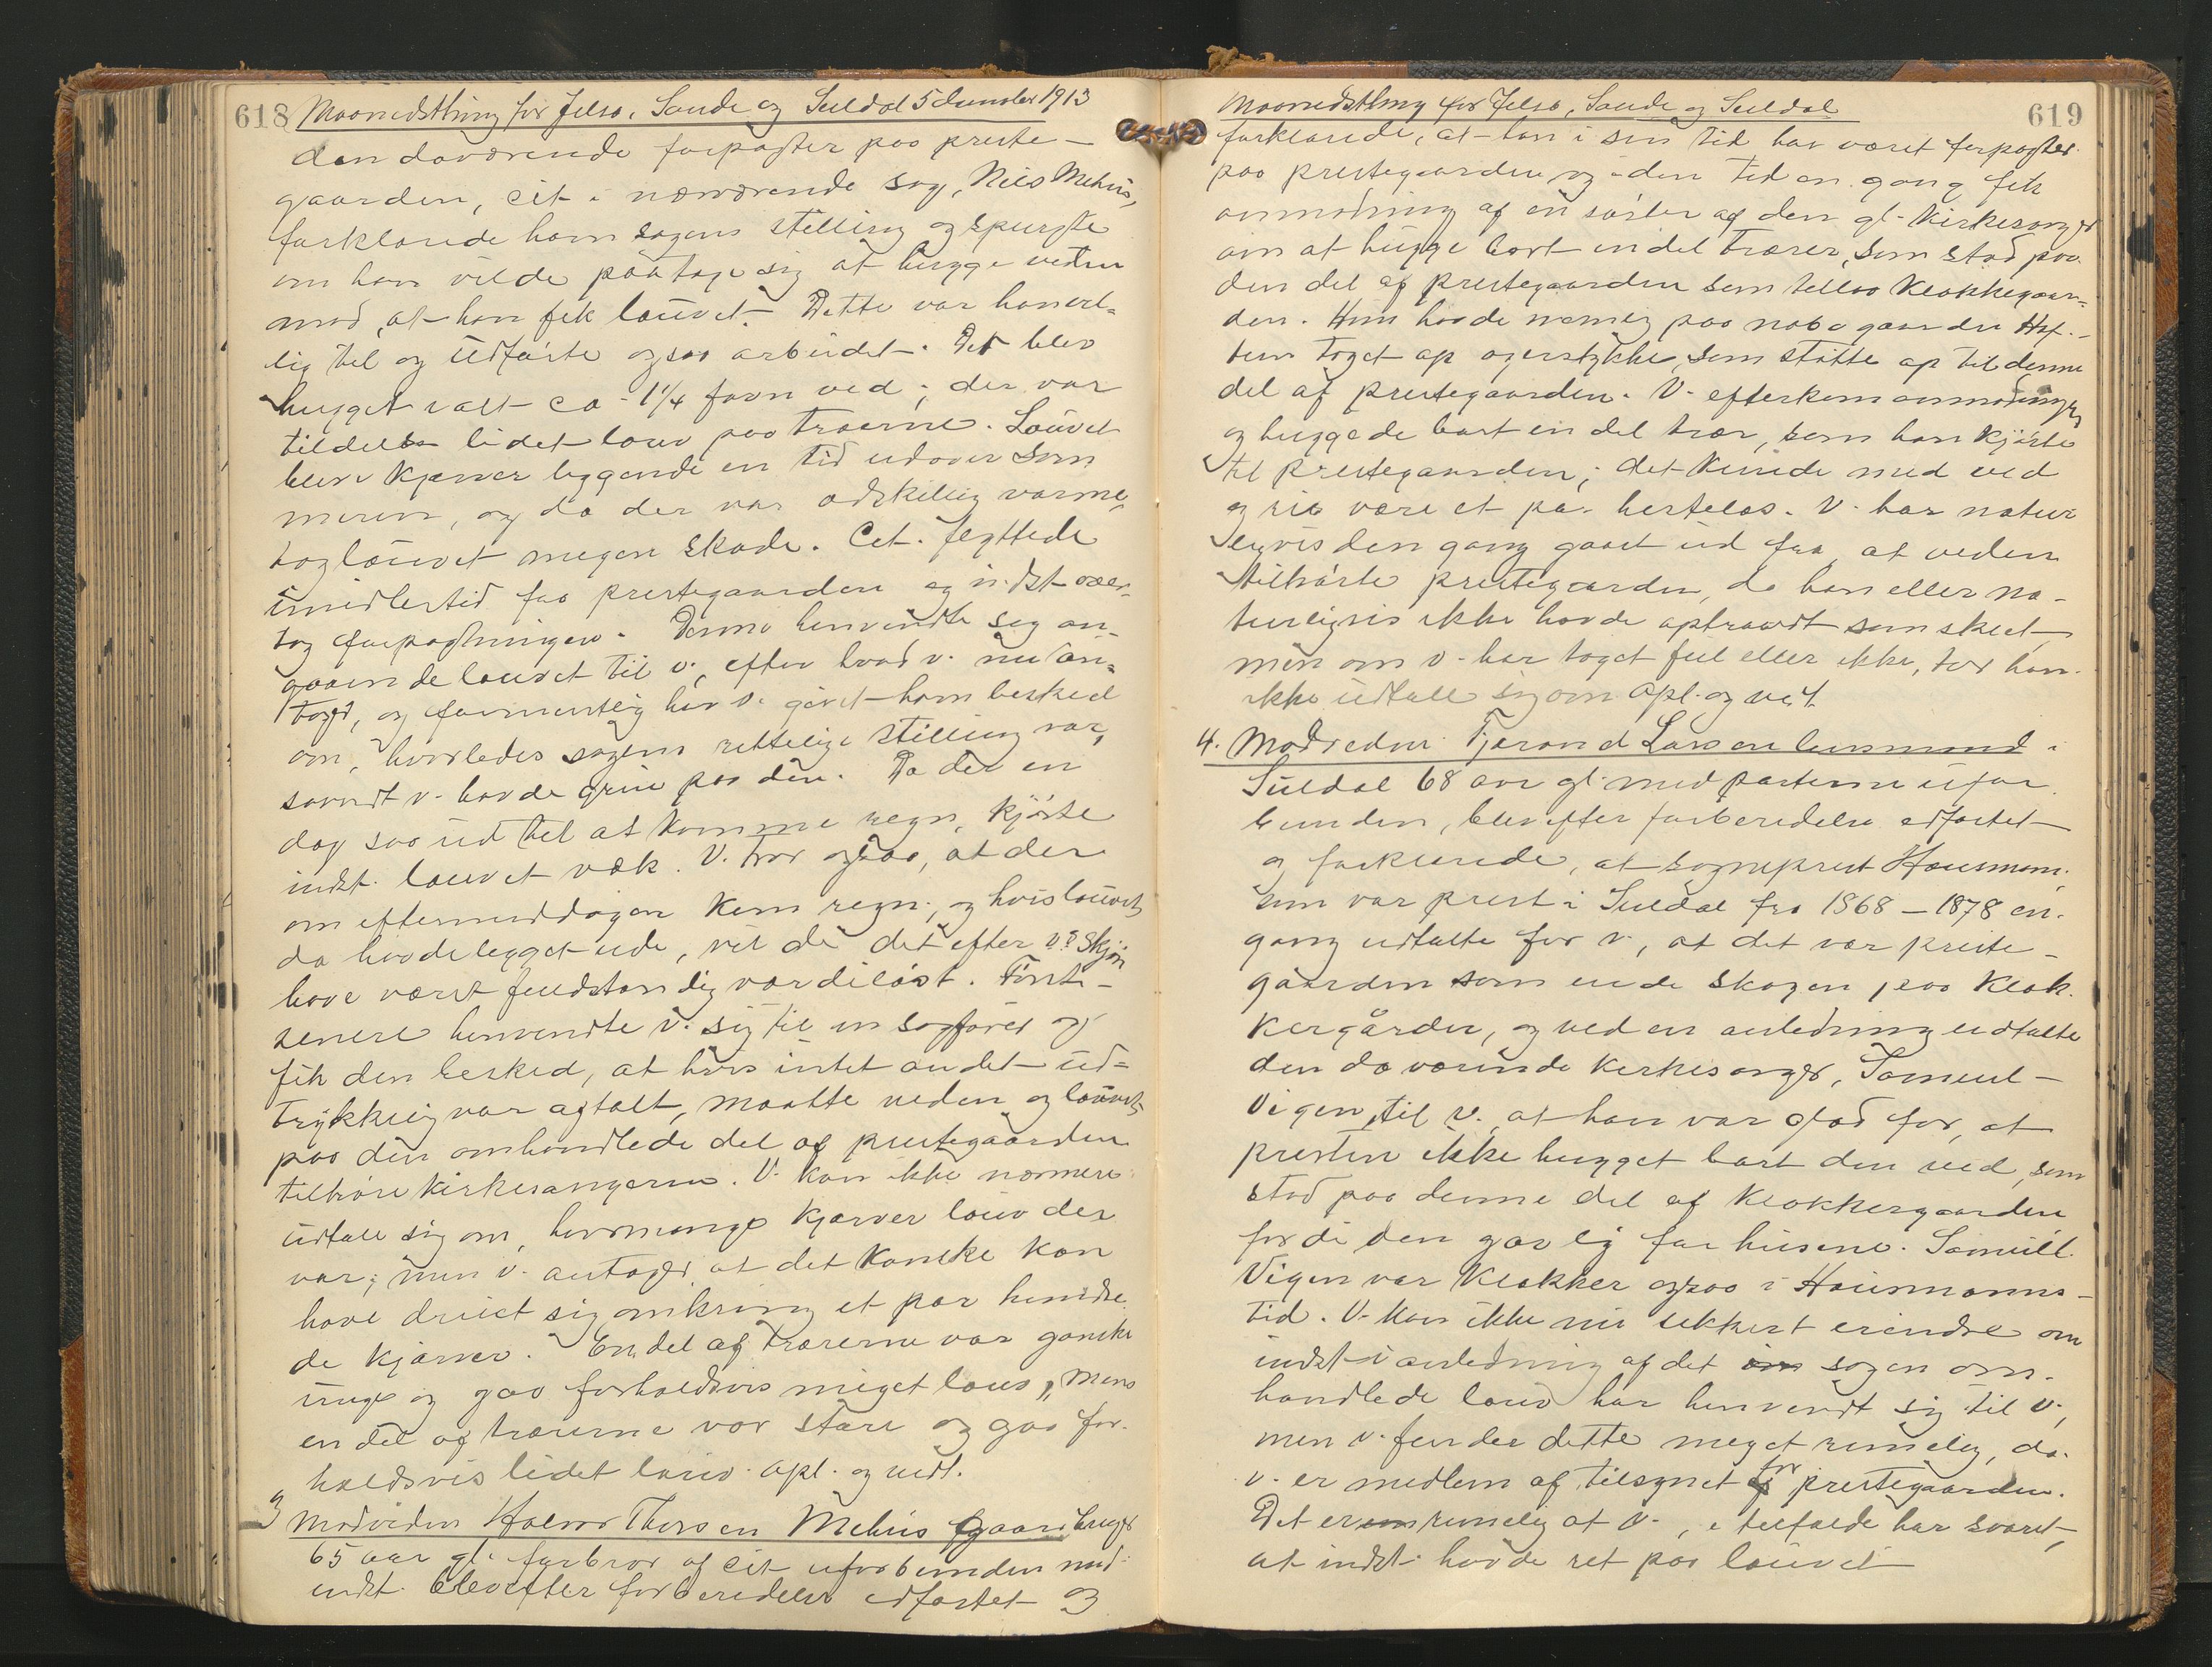 618 Maanedsthing for Jelsø, Sande og Suldal 5 december 1913
den daværende forpagter paa preste-
gaarden, cit i nærværende sag, Nils Mehus,
forklarede ham sagens stilling og spurgte
om han vilde paatage sig at hugge veden
mod, at han fik lauvet. Dette var han vil-
lig til og udførte ogsaa arbeidet. Det blev
hugget ialt ca 1 1/4 favn ved; der var
tildels lidet lauv paa træerne. Lauvet
blev i kjærver liggende en tid udover som
meren, og da der var adskillig varme,
tog lauvet megen skade. Cit. flyttede
imidlertid fra prestegaarden og indst over-
tog forpagtningen. Denne henvendte seg an-
gaaende lauvet til v, efter hvad v. nu an-
tager, og formentlig har v. givet ham besked
om, hvorledes sagens rettelige stilling var,
savidt v. havde greie paa den. Da det en
dag saa ud til at komme regn, kjørte
indst. lauvet væk. V. tror ogsaa, at der
om eftermiddagen kom regn, og hvis lauvet
da havde ligget ude, vil de det efter v.s skjøn
have været fuldstændig værdiløst. Først
senere henvendte v. sig til en sagfører og
fik den besked, at hvis intet andet ud-
trykkelig var aftalt, maatte veden og lauvet
paa den omhandlede del af prestegaarden
tilhøre kirkesangeren. V. kan ikke nærmere
udtale sig om, hvormange kjærver lauv der
var; men v. antager at det kanske kan
have dreiet sig omkring et par hundre
de kjærver. En del af træerne var ganske
unge og gav forholdsvis meget lauv, mens
en del af træerne var større og gav for-
holdsvis lidet lauv. Opl. og vedt.
3 Modvidne Halvor Thorsen Mehus gaardbruger
65 aar gl. farbror af cit uforbunden med
indst. blev efter forberedelse edfæstet og
Maanedsthing for Jelsø, Sande og Suldal 619
forklarede, at han i sin tid har været forpagter
paa prestegaarden og i den tid en gang fik
anmodning af en søster af den gl. kirkesanger
om at hugge bort en del trærer, som stod paa
den del af prestegaarden som tillaa Klokkegaar-
den. Hun havde nemlig paa nabogaarden
tem taget op agerstykke, som støtte op til denne
del af prestegaarden. V. efterkom anmodningen
og huggede bort en del trær, som han kjørte
til prestegaarden; det kunde med ved
og ris være et par hestelas. V. har natur
ligvis den gang gaaet ud fra, at veden
tilhørte prestegaarden, da han ellers na-
turligvis ikke havde optraadt som skeet
men om v. har taget feil eller ikke, tør han
ikke udtale sig om Opl. og vedt.
4. Modvidne Tjerand Larsen lensmand i
Suldal 68 aar gl. med parterne ufor
bunden, blev efter forberedelse edfæstet
og forklarede, at sogneprest Hausmann,
som var prest i Suldal fra 1868 – 1878 en-
gang udtalte for v, at det var preste-
gaarden som eiede skogen paa Klok-
kergården, og ved en anledning udtalte
den daværende kirkesanger, Samuel
Vigen, til v. at han var glad for, at
presten ikke hugget bort den ved, som
stod paa denne del af Klokkergaarden
fordi den gav ly for husene. Samuel
Vigen var Klokker ogsaa i Hausmanns
tid. V. kan ikke nu sikkert erindre om
indst i anledning af det sagen om-
handlede lauv har henvendt sig til v.,
men v. finder dette meget rimelig, da
v. er medlem af tilsynet for prestegaarden.
Det er rimelig at v., i tilfælde har svaret
at indst. havde ret paa lauvet